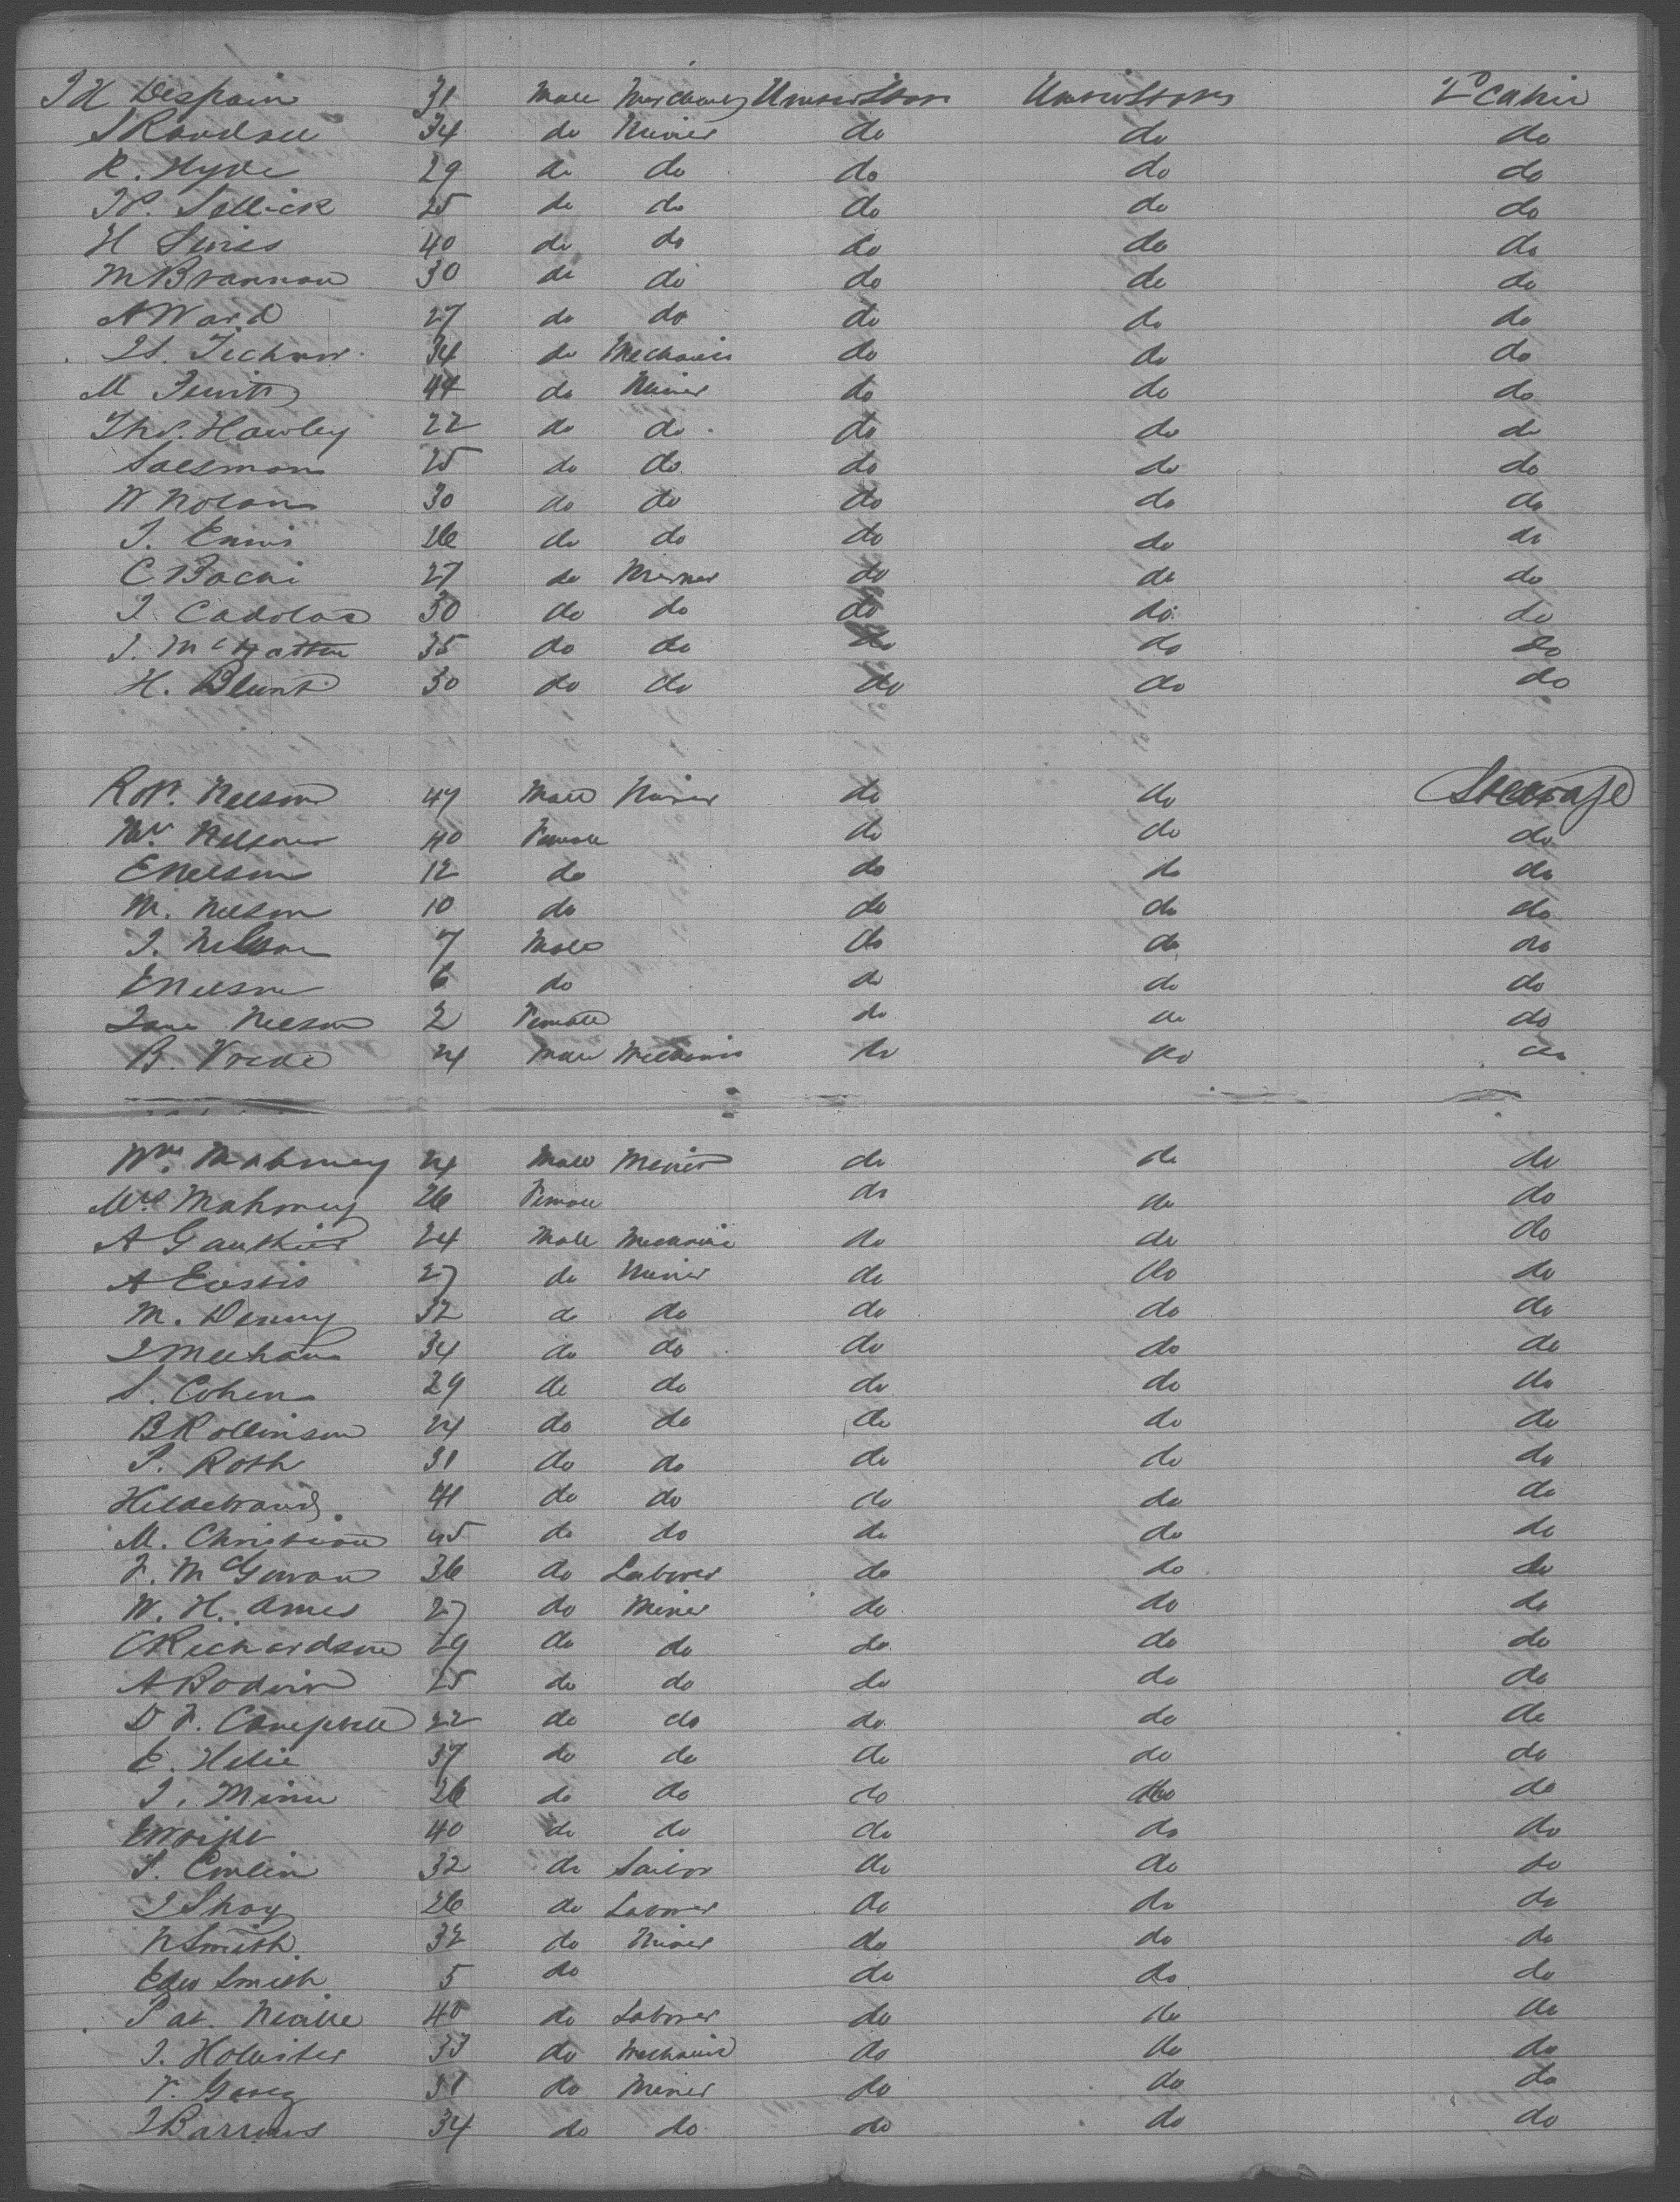 J H Despain 31 Male Merchant U States U States 2d Cabin
S Randall 34 do Miner do do do
R. Hyde 29 do do do do do
Sellick 25 do do do do do
H 40 do do do do do
M Brannan 30 do do do do do
A Ward 27 do do do do do
34 do Mechanic do do do
M 44 do Miner do do do
Thos. Hawley 22 do do do do do
Salsman 25 do do do do do
W Nolan 30 do do do do do
J. Ennis 26 do do do do do
C Bachi 27 do Miner do do do
J. 30 do do do do do
J. 35 do do do do do
H. Blunt 30 do do do do do
Robt. Nelson 47 Male Miner do do Steerage
Mrs. Nelson 40 Female do do do
E Nelson 12 do do do do
M. Nelson 10 do do do do
J. Nelson 7 Male do do do
E Nelson 6 do do do do
Jane Nelson 2 Female do do do
B. 24 Male Mechanic do do do
Wm. Mahoney 24 Male Miner do do do
Mrs Mahoney 26 Female do do do
A Gauthier 24 Male Mechanic do do do
A 27 do Miner do do do
M. Denny 32 do do do do do
J Meehan 34 do do do do do
S. Cohen 29 do do do do do
B Rollinson 24 do do do do do
P. Roth 31 do do do do do
Hildebrand 41 do do do do do
M. Christian 45 do do do do do
F. McGowan 36 do Laborer do do do
W. H. Ames 27 do Miner do do do
C Richardson 29 do do do do do
A Bodwin 25 do do do do do
D F. Campbell 22 do do do do do
E. 37 do do do do do
J. 26 do do do do do
40 do do do do do
32 do Sailor do do do
J Shay 26 do Laborer do do do
N Smith 32 do Miner do do do
Edw Smith 5 do do do do
Pat. 40 do Laborer do do do
J. Hollister 33 do Mechanic do do do
31 do Miner do do do
J Barrows 34 do do do do do